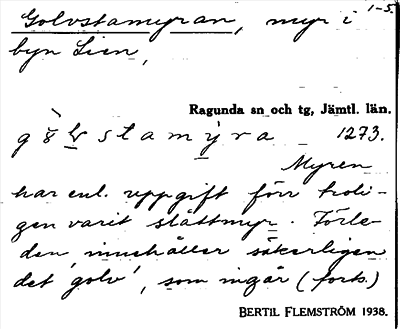 Golvstamyran, myr i 1-5.
byn Lien,
Ragunda sn och tg, Jämtl. län.
stamyra 1273.
Myren
har enl. uppgift förr troli-
gen varit slåttmyr. Förle-
den innehåller säkerligen
det golv', som ingår (forts.)
BERTIL FLEMSTRÖM 1938.